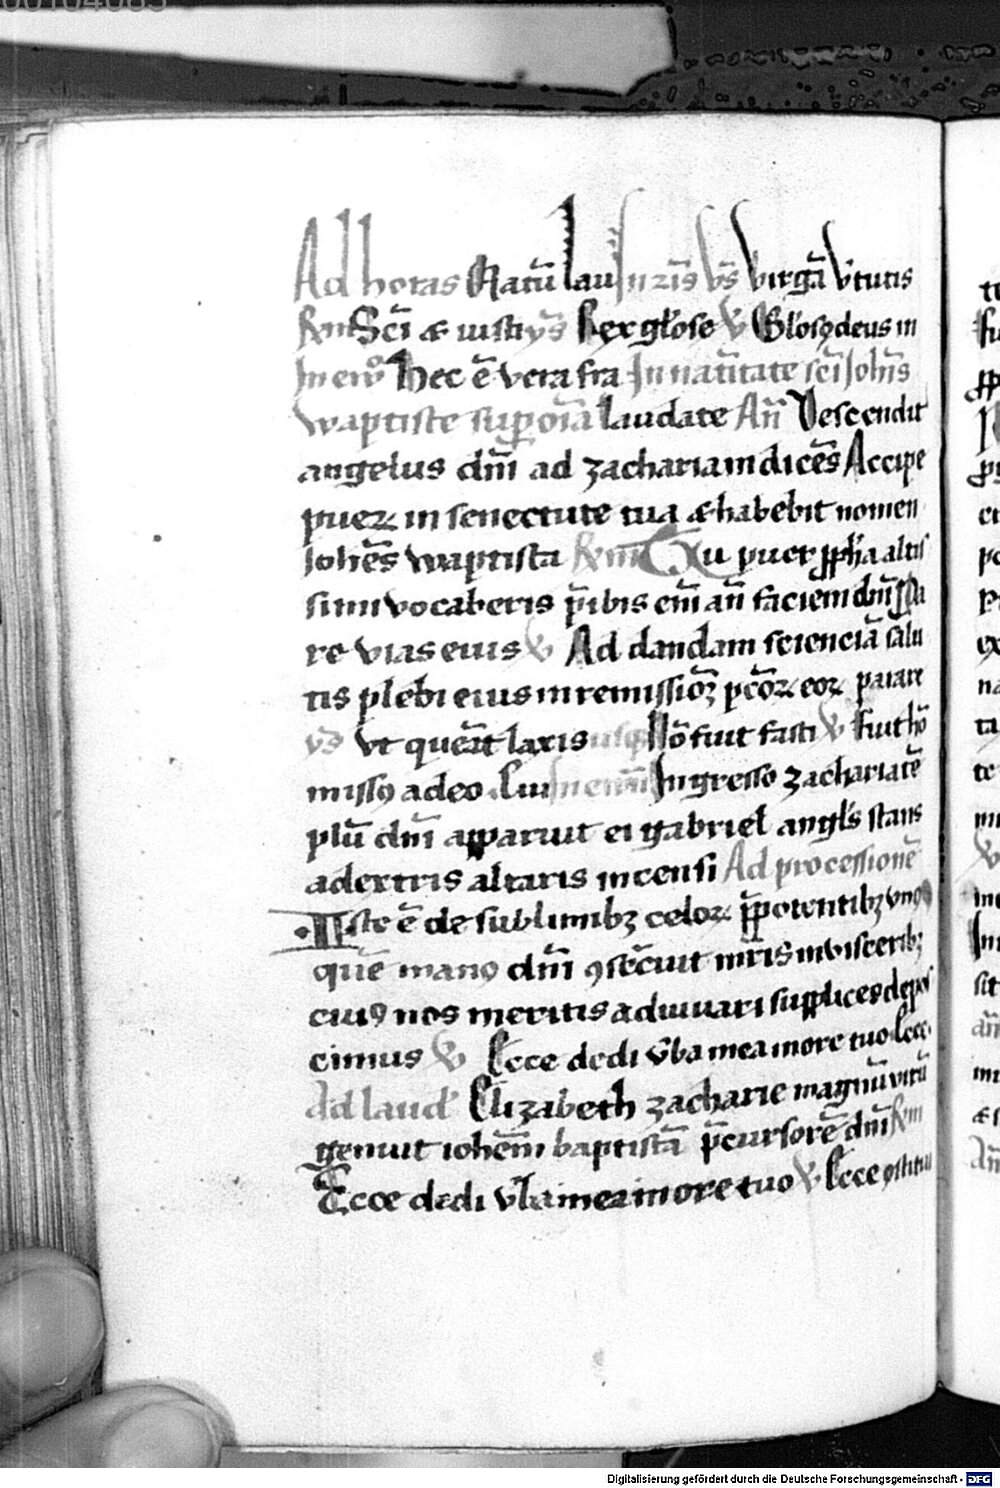 Ad horas Ratū lau In ziis Vs Virgā v̄tutis
Rm Sci et iusti vs Rex glose V Glosꝫ deus in
In euᵒ Hec ē vera fra In natiītate sci Johis
waptiste sup oīa laudate Añ Descendit
angelus dñi ad zachariam dicēs Accipe
pueꝝ in senectute tua et habebit nomen
Johēs waptista Rm Tu puer ꝓpha altis
simi vocaberis p̄ibis eīn añ faciem dñi Pa
re vias eius V Ad dandam scienciā salu
tis plebi eius in remissioꝫ pcōꝝ eoꝝ parare
vs Vt queāt laxis Nō fuit fasti V Fuit hō
missꝰ a deo Cui In Ingresso zacharia tē
plū dñi apparuit ei gabriel angl's stans
a dextris altaris incensi Ad processionē
Iste ē de sublimibꝫ celoꝝ p̄potentibꝫ vnꝰ
quē manꝰ dñi ꝯsecuit mris in visceribꝫ
ciuiꝰ nos meritis adiuuari supplices depos
cimus V Ecce dedi v̄ba mea in ore tuo Ecce
Ad laud' Elizabeth zacharie magnū virū
genuit iohēm baptistā p̄cursorē dñi Rm
Ecce dedi v̄ba mea in ore tuo V Ecce ꝯstitui
Digitalisierung gefördert durch die Deutsche Forschungsgemeinschaft - DFG